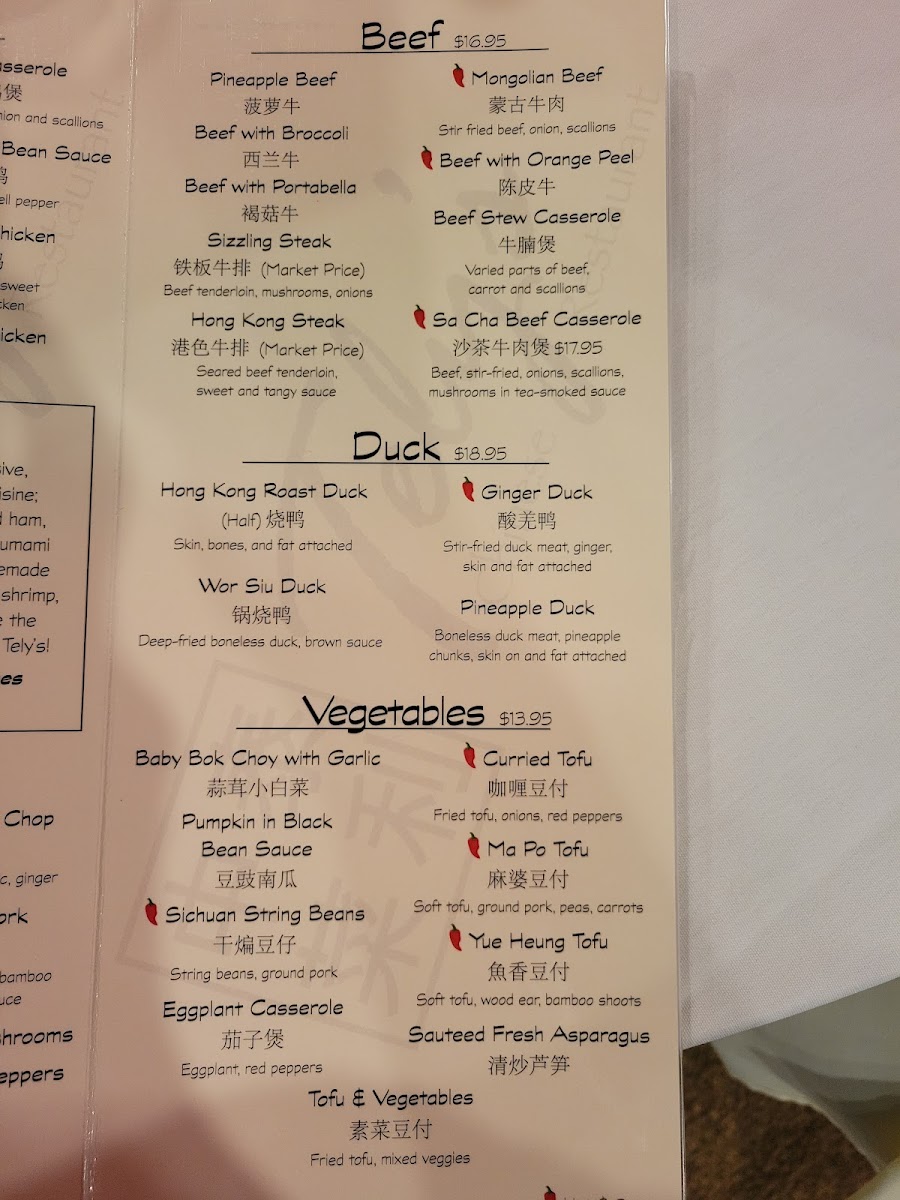 asserole
煲
nion and scallions
Bean Sauce
鸭
ell pepper
hicken
sweet
cken
icken
sive,
isine;
d ham,
umami
emade
shrimp,
e the
Tely's!
es
Chop
c, ginger
ork
bamboo
uce
hrooms
eppers
Beef $16.95
Pineapple Beef
菠萝牛
Beef with Broccoli
西兰牛
Beef with Portabella
褐菇牛
Sizzling Steak
铁板牛排 (Market Price)
Beef tenderloin, mushrooms, onions
Hong Kong Steak
港色牛排 (Market Price)
Seared beef tenderloin,
sweet and tangy sauce
Mongolian Beef
蒙古牛肉
Stir fried beef, onion, scallions
Beef with Orange Peel
陈皮牛
Beef Stew Casserole
牛腩煲
Varied parts of beef,
carrot and scallions
Sa Cha Beef Casserole
沙茶牛肉煲 $17.95
Beef, stir-fried, onions, scallions,
mushrooms in tea-smoked sauce
Duck $18.95
Hong Kong Roast Duck
(Half) 烧鸭
Skin, bones, and fat attached
Wor Siu Duck
锅烧鸭
Deep-fried boneless duck, brown sauce
Ginger Duck
酸羌鸭
Stir-fried duck meat, ginger,
skin and fat attached
Pineapple Duck
Boneless duck meat, pineapple
chunks, skin on and fat attached
Vegetables $13.95
Baby Bok Choy with Garlic
蒜茸小白菜
Pumpkin in Black
Bean Sauce
豆豉南瓜
Sichuan String Beans
干煸豆仔
String beans, ground pork
Eggplant Casserole
茄子煲
Eggplant, red peppers
Curried Tofu
咖喱豆付
Fried tofu, onions, red peppers
Ma Po Tofu
麻婆豆付
Soft tofu, ground pork, peas, carrots
Yue Heung Tofu
魚香豆付
Soft tofu, wood ear, bamboo shoots
Sauteed Fresh Asparagus
清炒芦笋
Tofu & Vegetables
素菜豆付
Fried tofu, mixed veggies